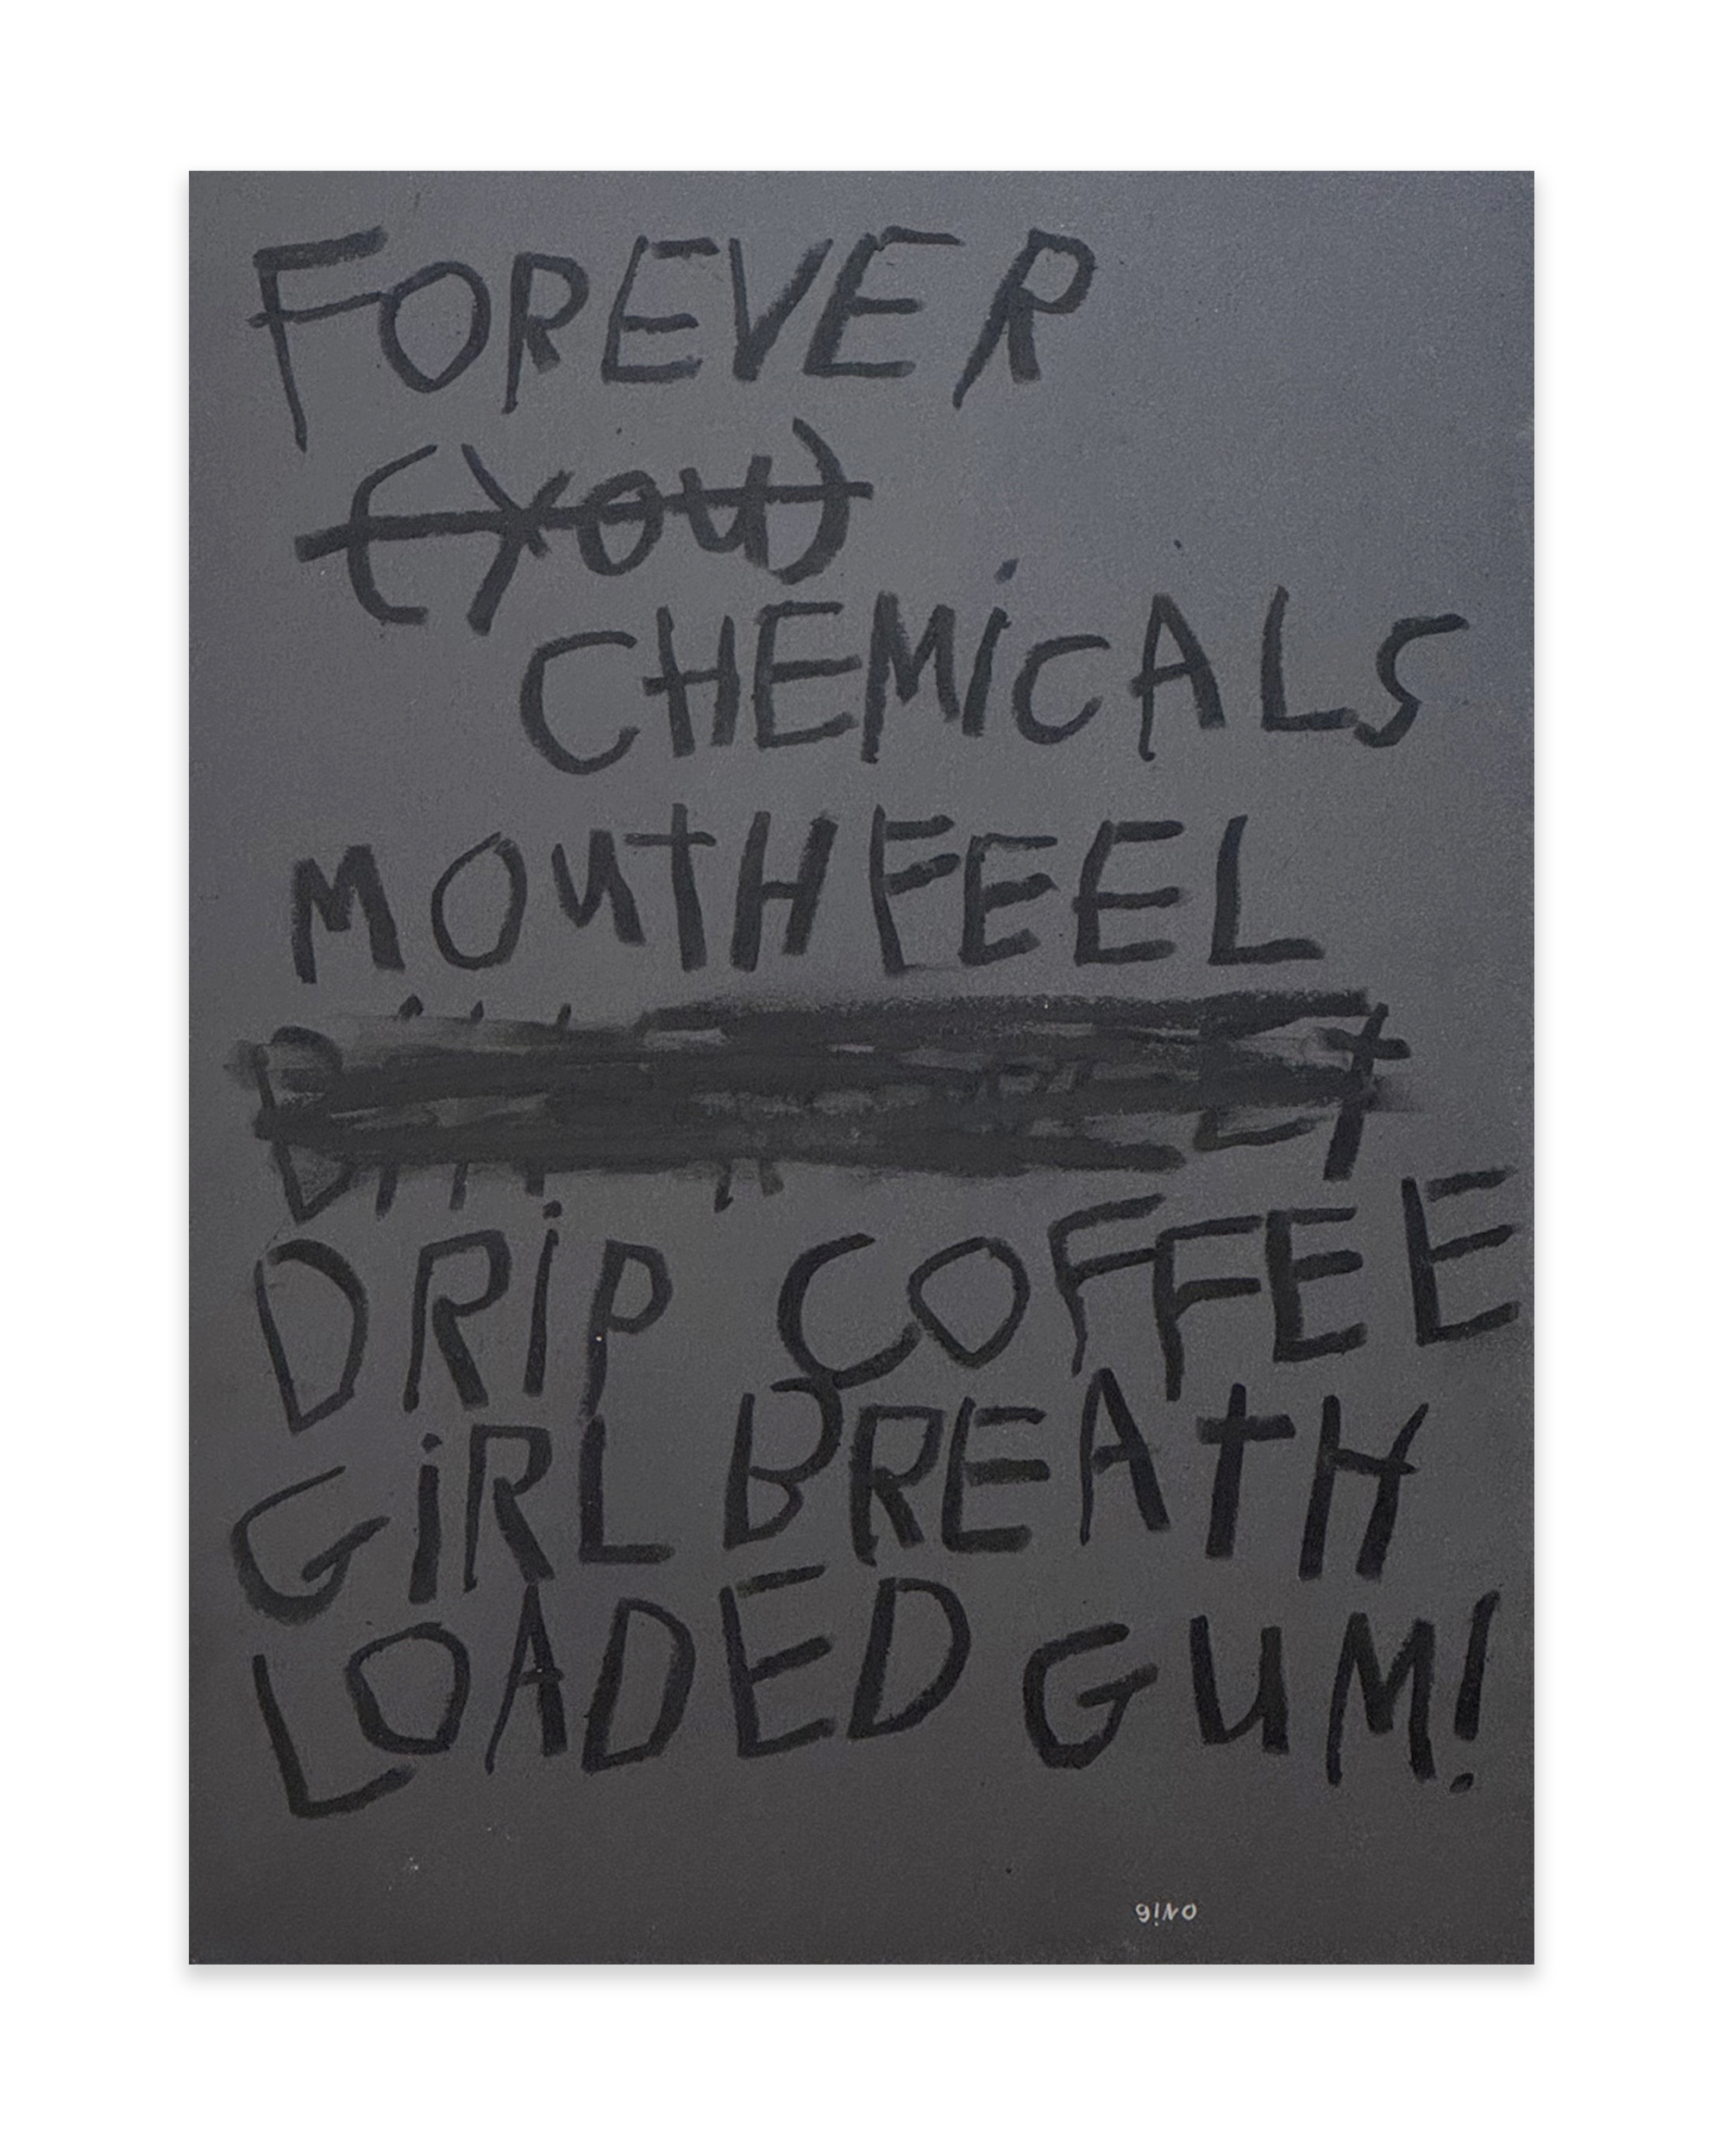 FOREVER
(You)
CHEMiCALS
MOUTHFEEL
DRiP COFFEE
GiRL BREATH
LOADED GUM!
giNO